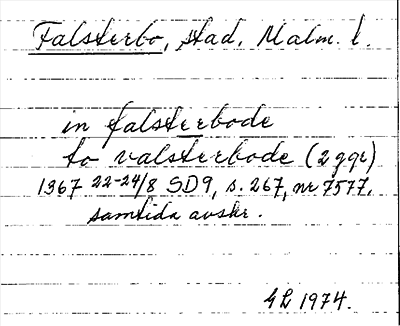 Falsterbo, stad. Malm. l.
in falsterbode
to valsterbode (2 ggr)
1367 22-24/8 SD9, s. 267, nr 7577.
samtida avskr.
GL 1974.